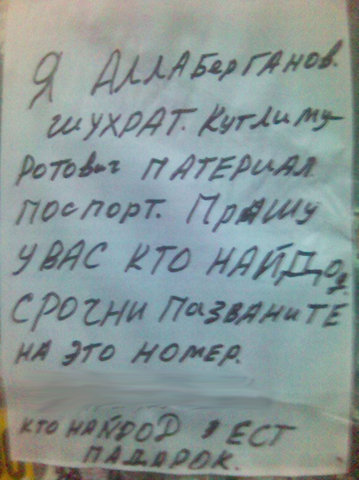 Я АЛЛАБЕРГАНОВ.
ШУХРАТ. КУТЛИМУ-
РОТОВИЧ ПАТЕРИАЛ
ПОСПОРТ. ПРАШУ
У ВАС КТО НАЙДОД
СРОЧНИ ПАЗВАНИТЕ
НА ЭТО НОМЕР.
КТО НАЙДОД ЕСТ
ПАДАРОК.